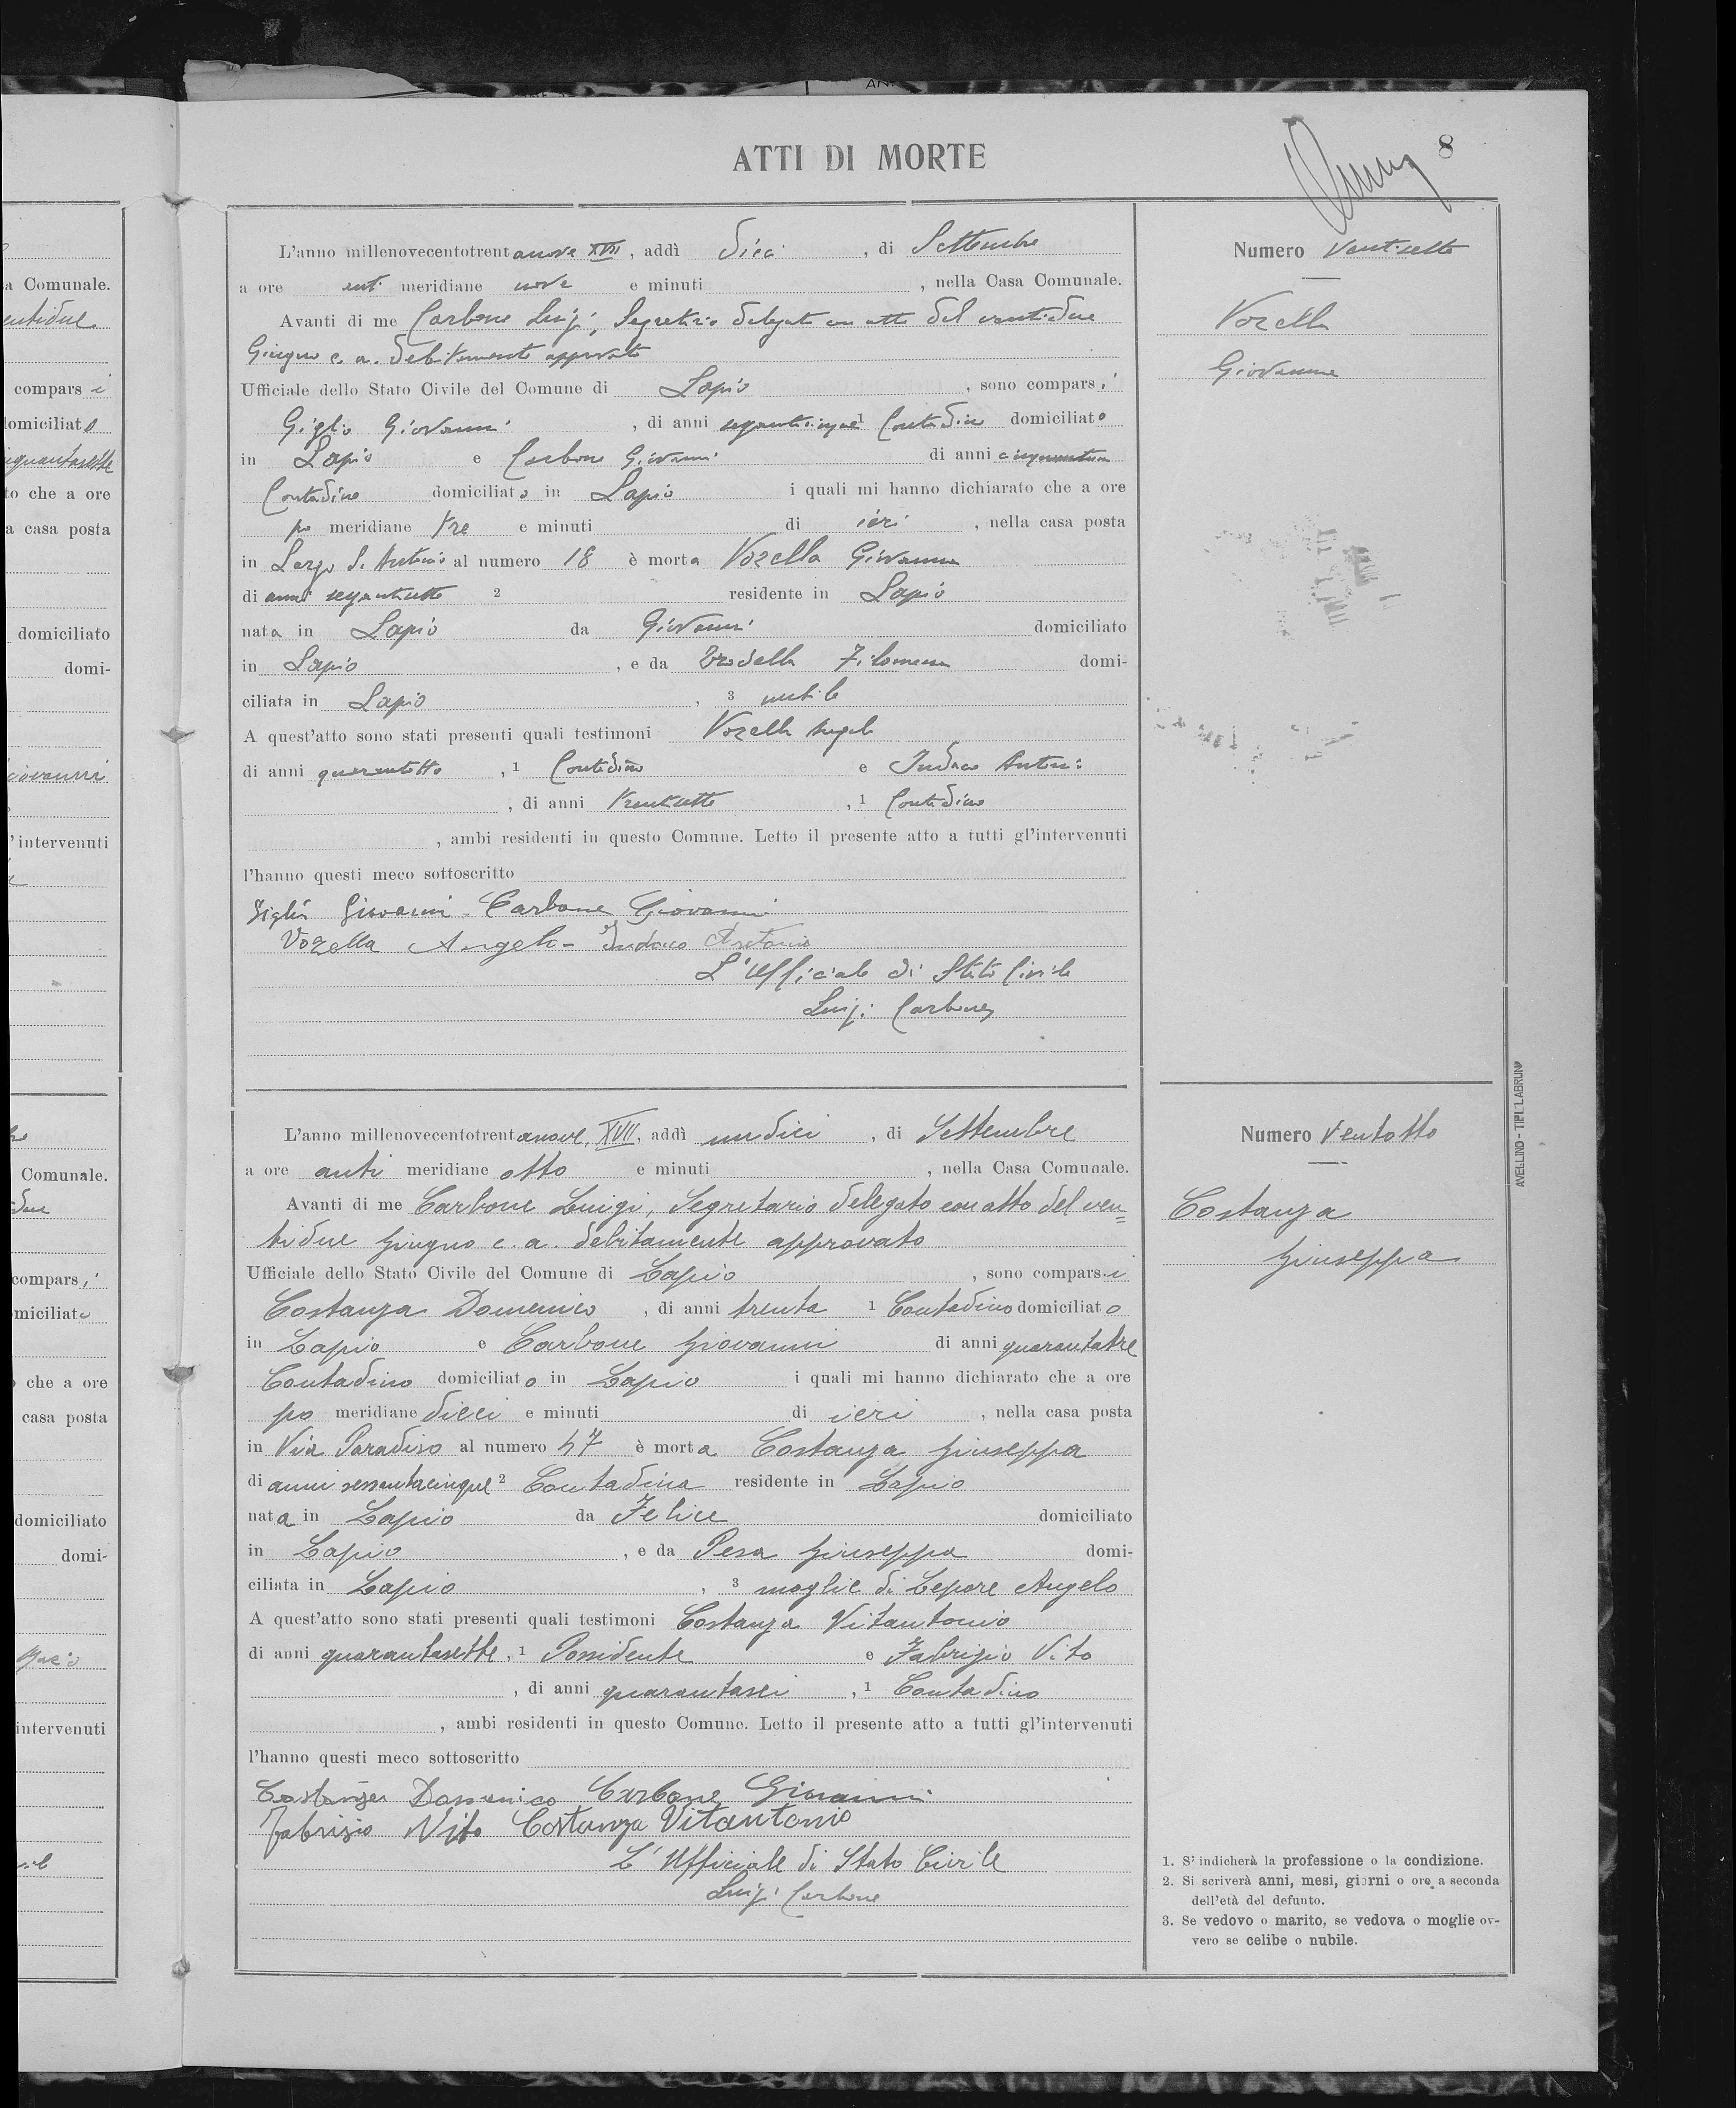 ATTI DI MORTE
8
L'anno millenovecentotrentanove XVII, addì dieci, di Settembre
a ore anti meridiane nove e minuti , nella Casa Comunale.
Avanti di me Carbone Luigi, Segretario delegato con atto del ventidue
Giugno c. a. debitamente approvato
Ufficiale dello Stato Civile del Comune di Lapio, sono comparsi
Giglio Giovanni, di anni 1 Contadino domiciliato
in Lapio e Carbone Giovanni di anni
Contadino domiciliato in Lapio i quali mi hanno dichiarato che a ore
po meridiane tre e minuti di ieri, nella casa posta
in Largo S. Antonio al numero 18 è morta Vozella Giovanna
di anni 2 residente in Lapio
nata in Lapio da Giovanni domiciliato
in Lapio, e da Filomena domi-
ciliata in Lapio, 3 nubile
A quest'atto sono stati presenti quali testimoni Vozella Angelo
di anni quarantotto, 1 Contadino e Indaco Antonio
, di anni trentasette, 1 Contadino
, ambi residenti in questo Comune. Letto il presente atto a tutti gl'intervenuti
l'hanno questi meco sottoscritto
Giglio Giovanni Carbone Giovanni
Vozella Angelo - Indaco Antonio
L'Ufficiale di Stato Civile
Luigi Carbone
Numero Ventisette
Vozella
Giovanna
L'anno millenovecentotrentanove, XVII, addì undici, di Settembre
a ore anti meridiane otto e minuti , nella Casa Comunale.
Avanti di me Carbone Luigi, Segretario delegato con atto del ven=
tidue Giugno c. a. debitamente approvato
Ufficiale dello Stato Civile del Comune di Lapio, sono comparsi
Costanza Domenico, di anni trenta 1 Contadino domiciliato
in Lapio e Carbone Giovanni di anni quarantatre
Contadino domiciliato in Lapio i quali mi hanno dichiarato che a ore
po meridiane dieci e minuti di ieri, nella casa posta
in Via Paradiso al numero 47 è morta Costanza Giuseppa
di anni sessantacinque 2 Contadina residente in Lapio
nata in Lapio da Felice domiciliato
in Lapio, e da Pesa Giuseppa domi-
ciliata in Lapio, 3 moglie di Lepore Angelo
A quest'atto sono stati presenti quali testimoni Costanza Vitantonio
di anni quarantasette, 1 Possidente e Fabrizio Vito
, di anni quarantasei, 1 Contadino
, ambi residenti in questo Comune. Letto il presente atto a tutti gl'intervenuti
l'hanno questi meco sottoscritto
Costanza Domenico Carbone Giovanni
Fabrizio Vito Costanza Vitantonio
L'Ufficiale di Stato Civile
Luigi Carbone
Numero Ventotto
Costanza
Giuseppa
1. S'indicherà la professione o la condizione.
2. Si scriverà anni, mesi, giorni o ore a seconda
dell'età del defunto.
3. Se vedovo o marito, se vedova o moglie ov-
vero se celibe o nubile.